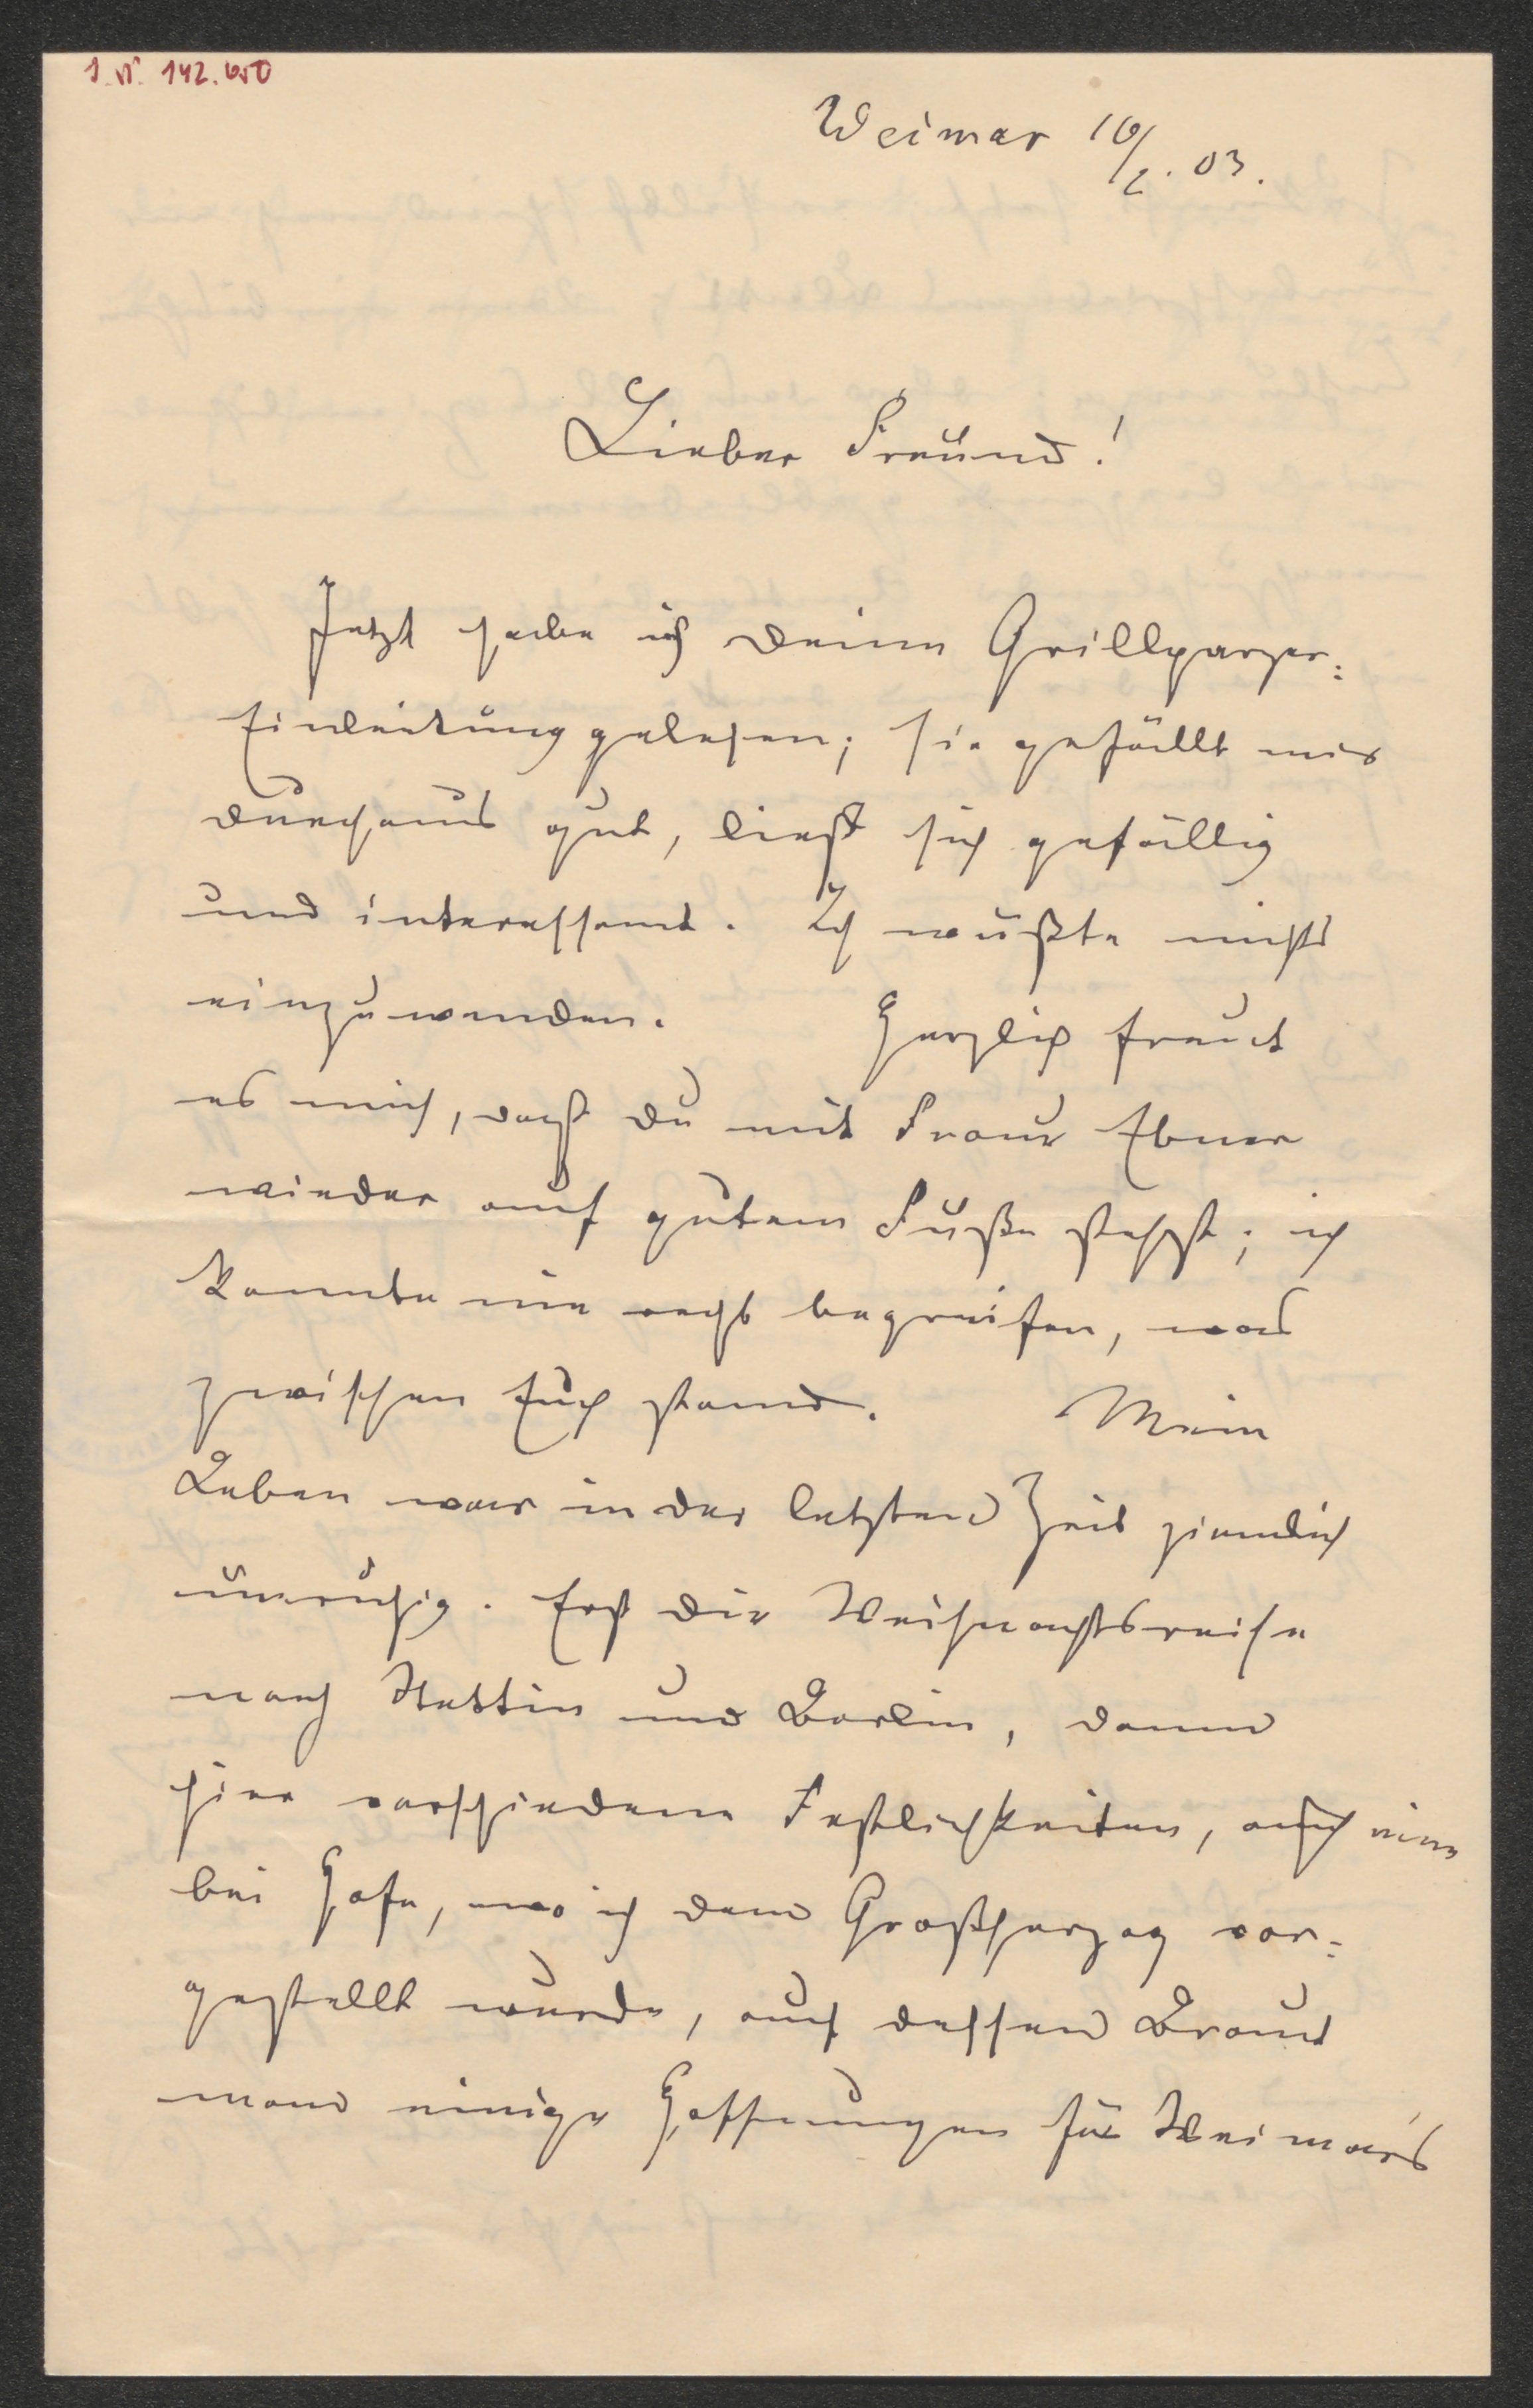 I. N. 142.650
Weimar 10/2. 03.
Lieber Freund!
Jetzt habe ich Deine Grillparzer-
Einleitung gelesen; sie gefällt mir
durchaus gut, liest sich gefällig
und interessant. Ich wüßte nichts
einzuwenden. Herzlich freut
es mich, daß Du mit Frau Ebner
wieder auf gutem Fuße stehst; ich
konnte nie recht begreifen, was
zwischen Euch stand. Mein
Leben war in der letzten Zeit ziemlich
unruhig. Erst die Weihnachtsreise
nach Stettin und Berlin, dann
hier verschiedene Festlichkeiten, auch eine
bei Hofe, wo ich dem Großherzog vor-
gestellt wurde, auf dessen Braut
man einige Hoffnungen für Weimar's